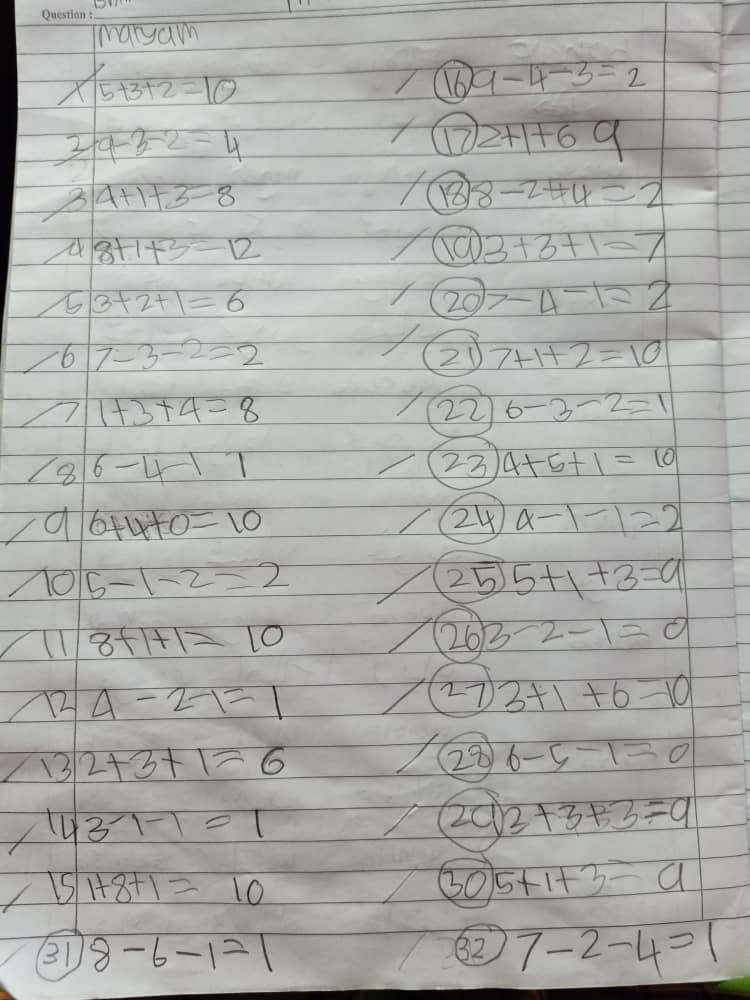 Question :
Maryam
1 5+3+2=10
2 9-3-2=4
3 4+1+3=8
4 8+1+3=12
5 3+2+1=6
6 7-3-2=2
7 1+3+4=8
8 6-4-1 1
9 6+4+0=10
10 5-1-2=2
11 8+1+1=10
12 4-2-1=1
13 2+3+1=6
14 3-1-1=1
15 1+8+1=10
31 8-6-1=1
16 9-4-3=2
17 2+1+6 9
18 8-2-4=2
19 3+3+1=7
20 7-4-1=2
21 7+1+2=10
22 6-3-2=1
23 4+5+1=10
24 4-1-1=2
25 5+1+3=9
26 3-2-1=0
27 3+1+6=10
28 6-5-1=0
29 2+3+3=9
30 5+1+3=9
32 7-2-4=1